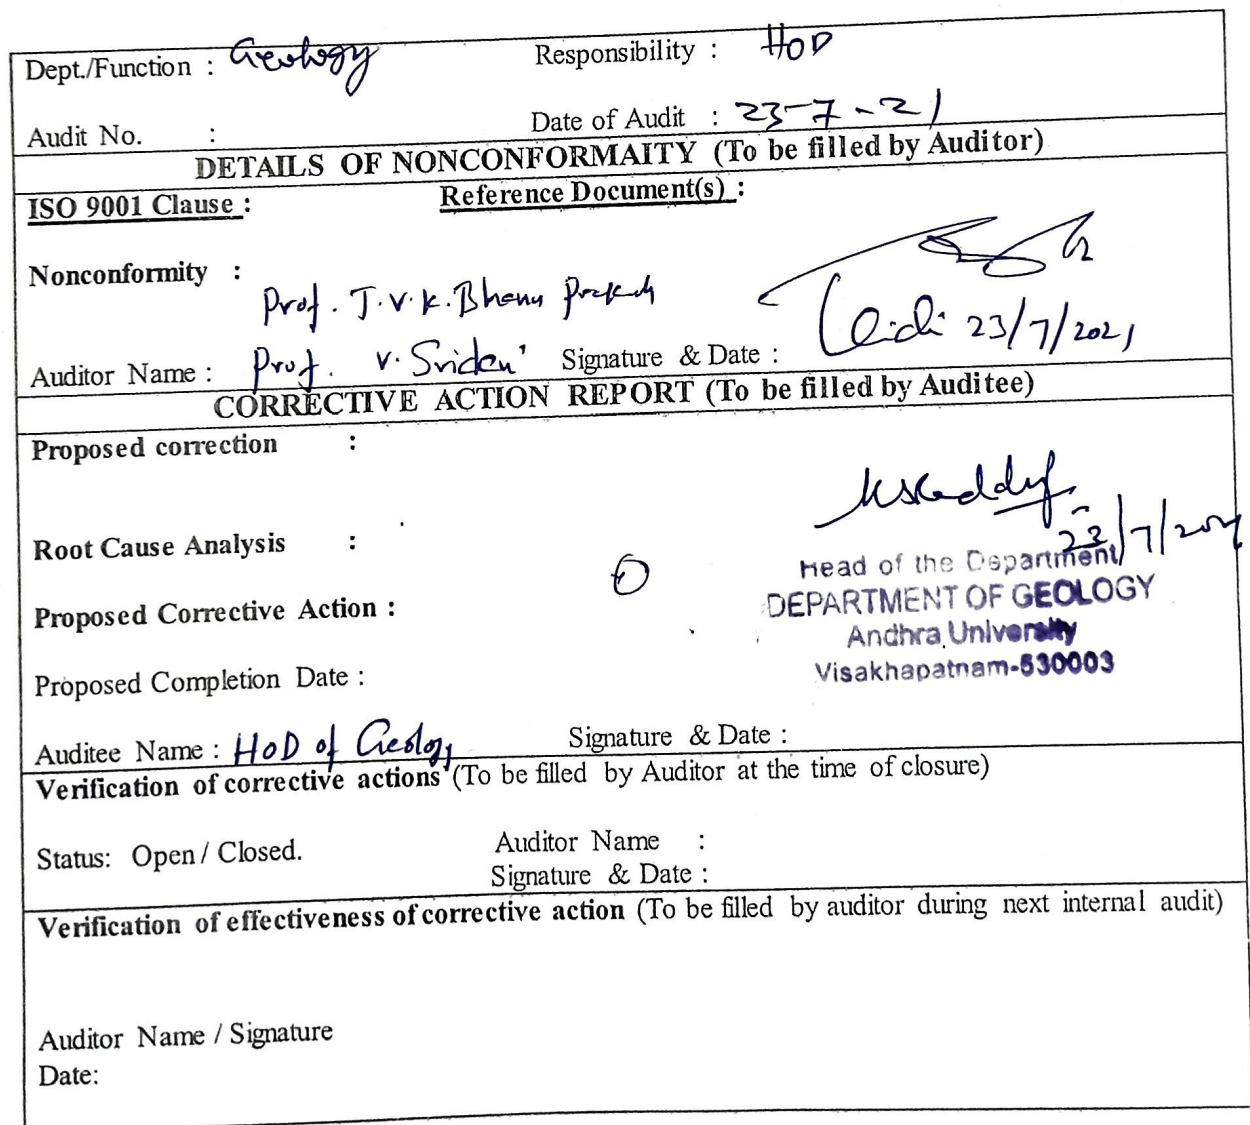 Dept./Function : Geology Responsibility : HOD
Audit No. : Date of Audit : 23-7-21
DETAILS OF NONCONFORMAITY (To be filled by Auditor)
ISO 9001 Clause : Reference Document(s) :
Nonconformity :
Prof. J.V.K. Bhanu Prakash
Auditor Name : Prof. V. Signature & Date : 23/7/2021
CORRECTIVE ACTION REPORT (To be filled by Auditee)
Proposed correction :
23/7/2021
Root Cause Analysis :
Head of the Department
DEPARTMENT OF GEOLOGY
Proposed Corrective Action :
Andhra University
Visakhapatnam-530003
Proposed Completion Date :
Auditee Name : HOD of Geology Signature & Date :
Verification of corrective actions (To be filled by Auditor at the time of closure)
Status: Open / Closed. Auditor Name :
Signature & Date :
Verification of effectiveness of corrective action (To be filled by auditor during next internal audit)
Auditor Name / Signature
Date: